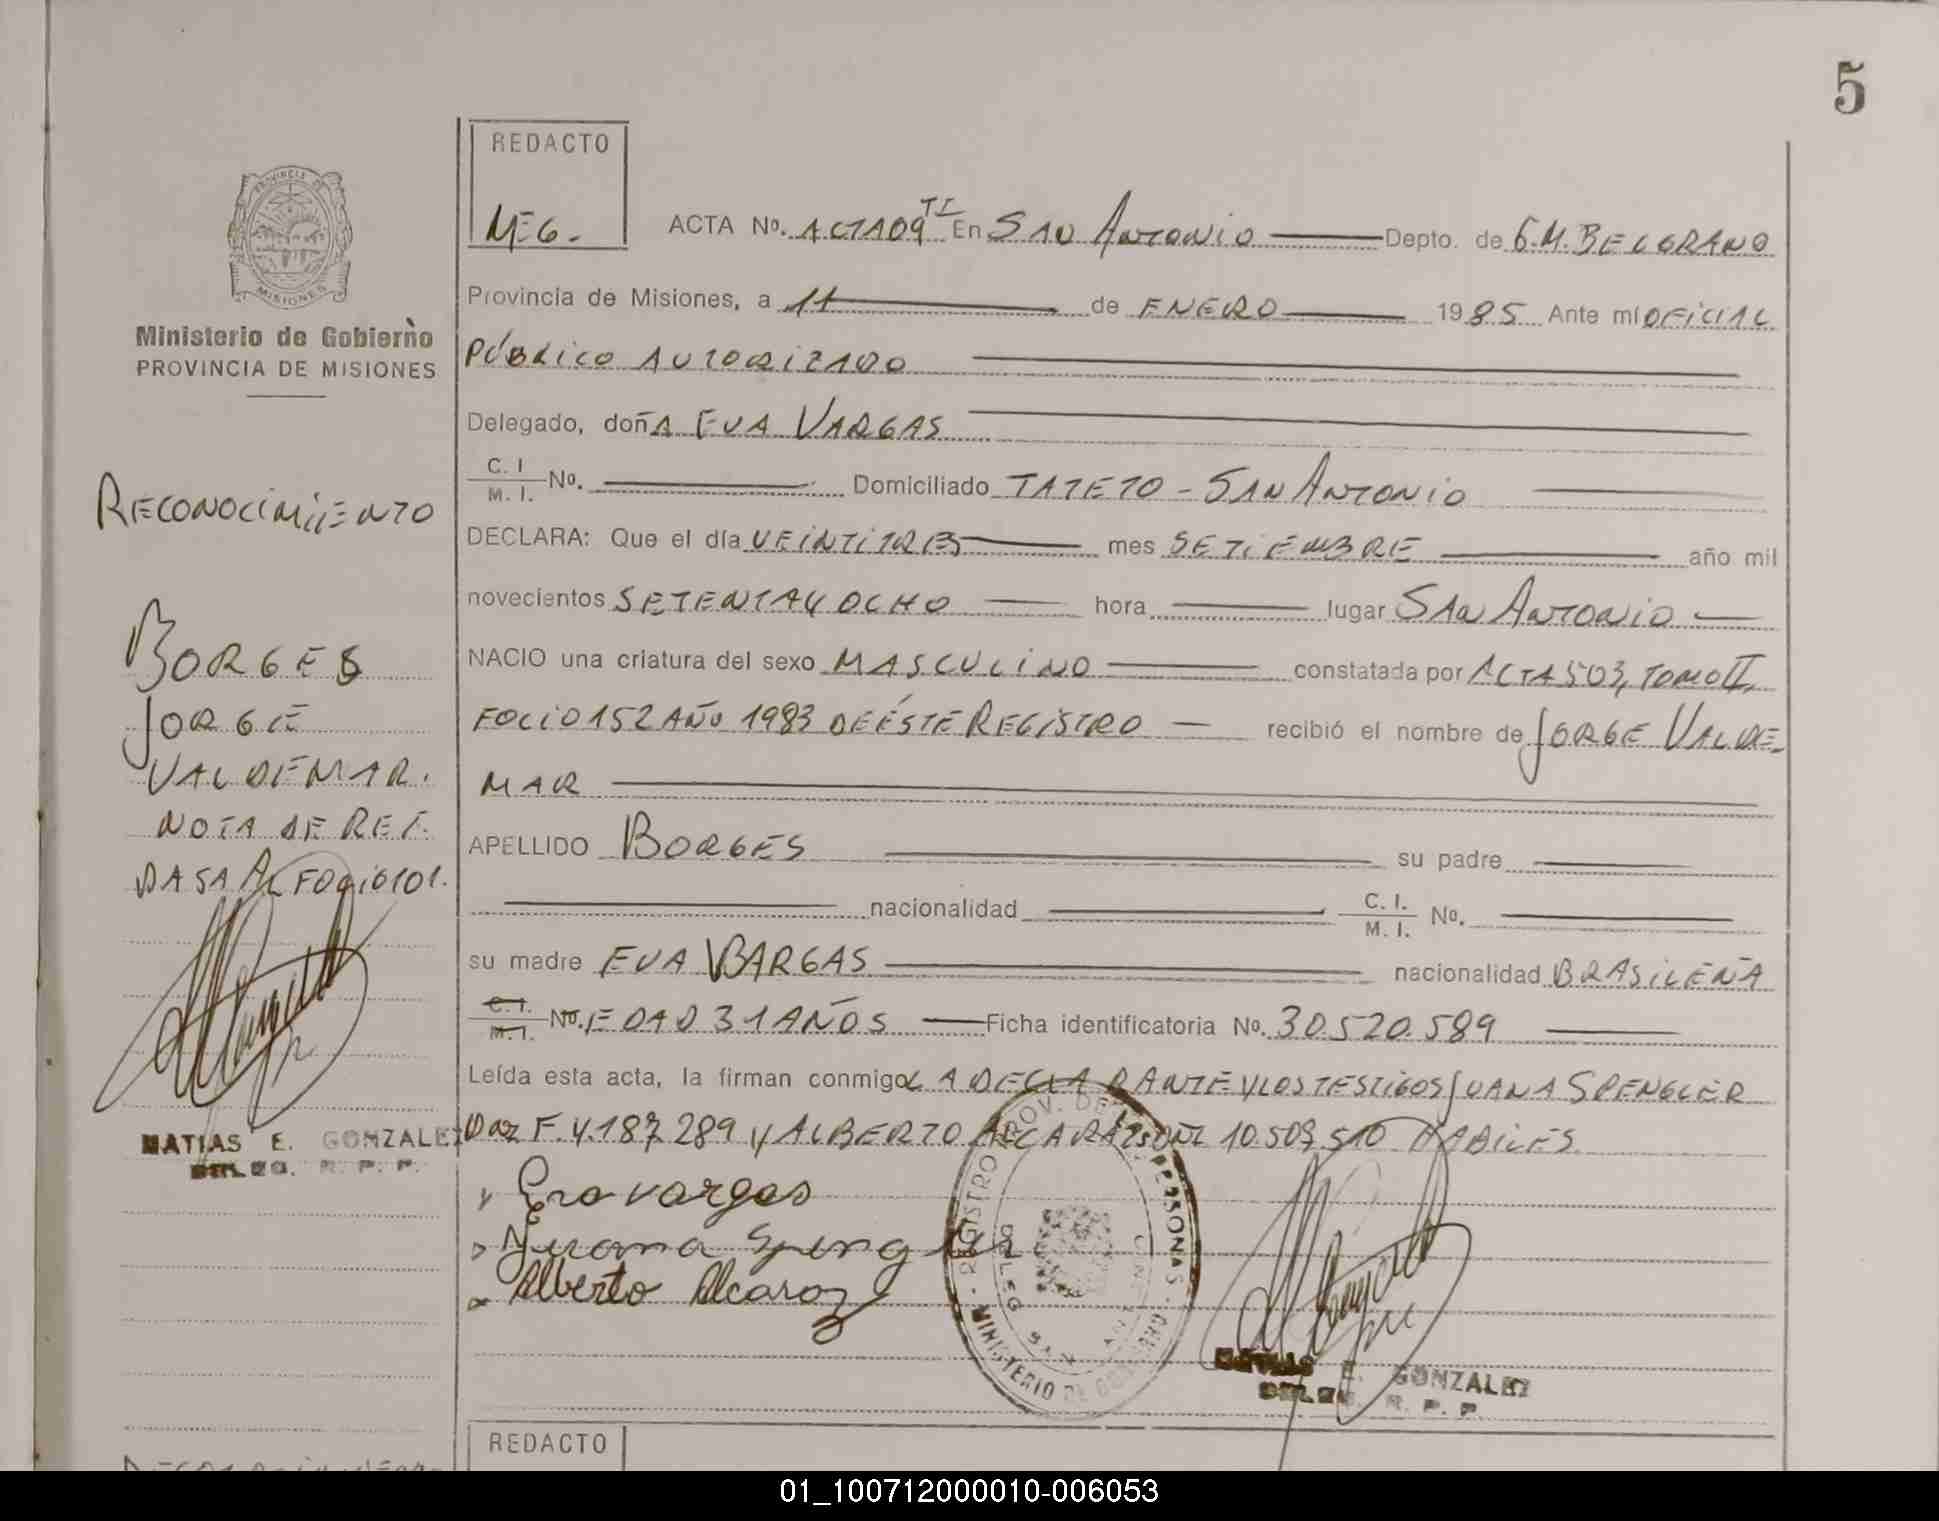 5
REDACTO
MEG.
ACTA No. ACTA09 TI En SAN ANTONIO Depto. de G.M. BELGRANO
PROVINCIA DE MISIONES
Ministerio de Gobierno
PROVINCIA DE MISIONES
Provincia de Misiones, a 11 de ENERO 1985 Ante mí OFICIAL
PÚBLICO AUTORIZADO
Delegado, doñA EVA VARGAS
C. I. M. I. No. Domiciliado TATETO - SAN ANTONIO
RECONOCIMIENTO
DECLARA: Que el día VEINTITRES mes SETIEMBRE año mil
novecientos SETENTA Y OCHO hora lugar SAN ANTONIO
BORGES
NACIO una criatura del sexo MASCULINO constatada por ACTA 503, TOMO II,
JORGE
FOLIO 152 AÑO 1983 DE ÉSTE REGISTRO recibió el nombre de JORGE VALDE-
VALDEMAR.
MAR
NOTA DE REF.
APELLIDO BORGES su padre
PASA AL FOLIO 101.
nacionalidad C. I. M. I. No.
su madre EVA VARGAS nacionalidad BRASILEÑA
C. I. M. I. No. EDAD 31 AÑOS Ficha identificatoria No. 30.520.589
Leída esta acta, la firman conmigo LA DECLARANTE Y LOS TESTIGOS JUANA SPENGLER
MATIAS E. GONZALEZ
DELEG. R. P. P.
F. 4.187.289 Y ALBERTO ALCARAZ DNI 10.503.510 HABILES.
Eva vargas
Juana Spengler
Alberto Alcaraz
REGISTRO PROV. DE LAS PERSONAS
MINISTERIO DE GOBIERNO
DELEG. SAN ANTONIO
MATIAS E. GONZALEZ
DELEG. R. P. P.
REDACTO
01_100712000010-006053